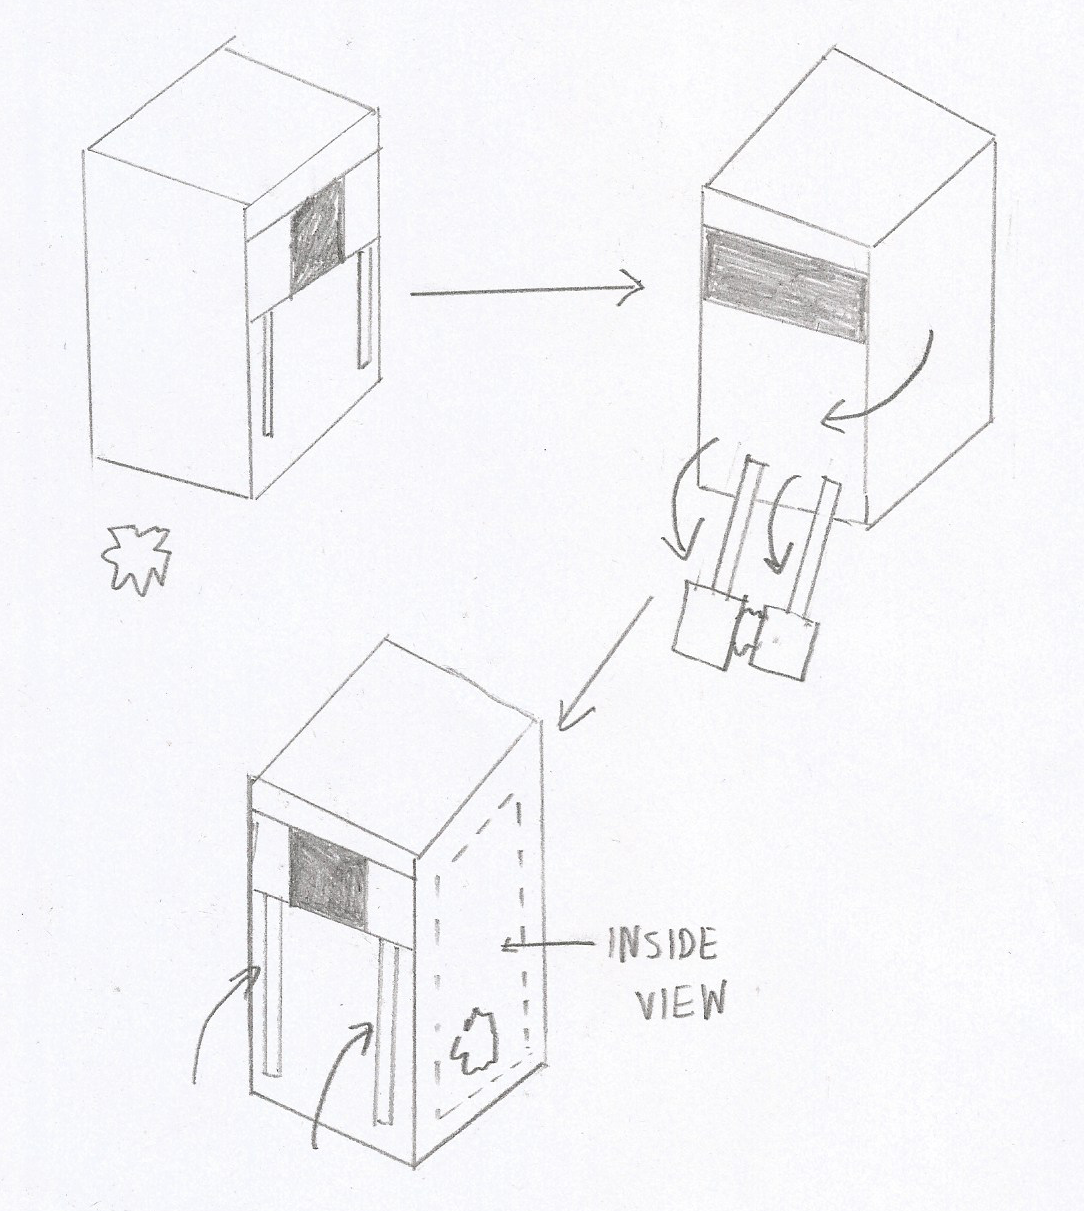 INSIDE
VIEW